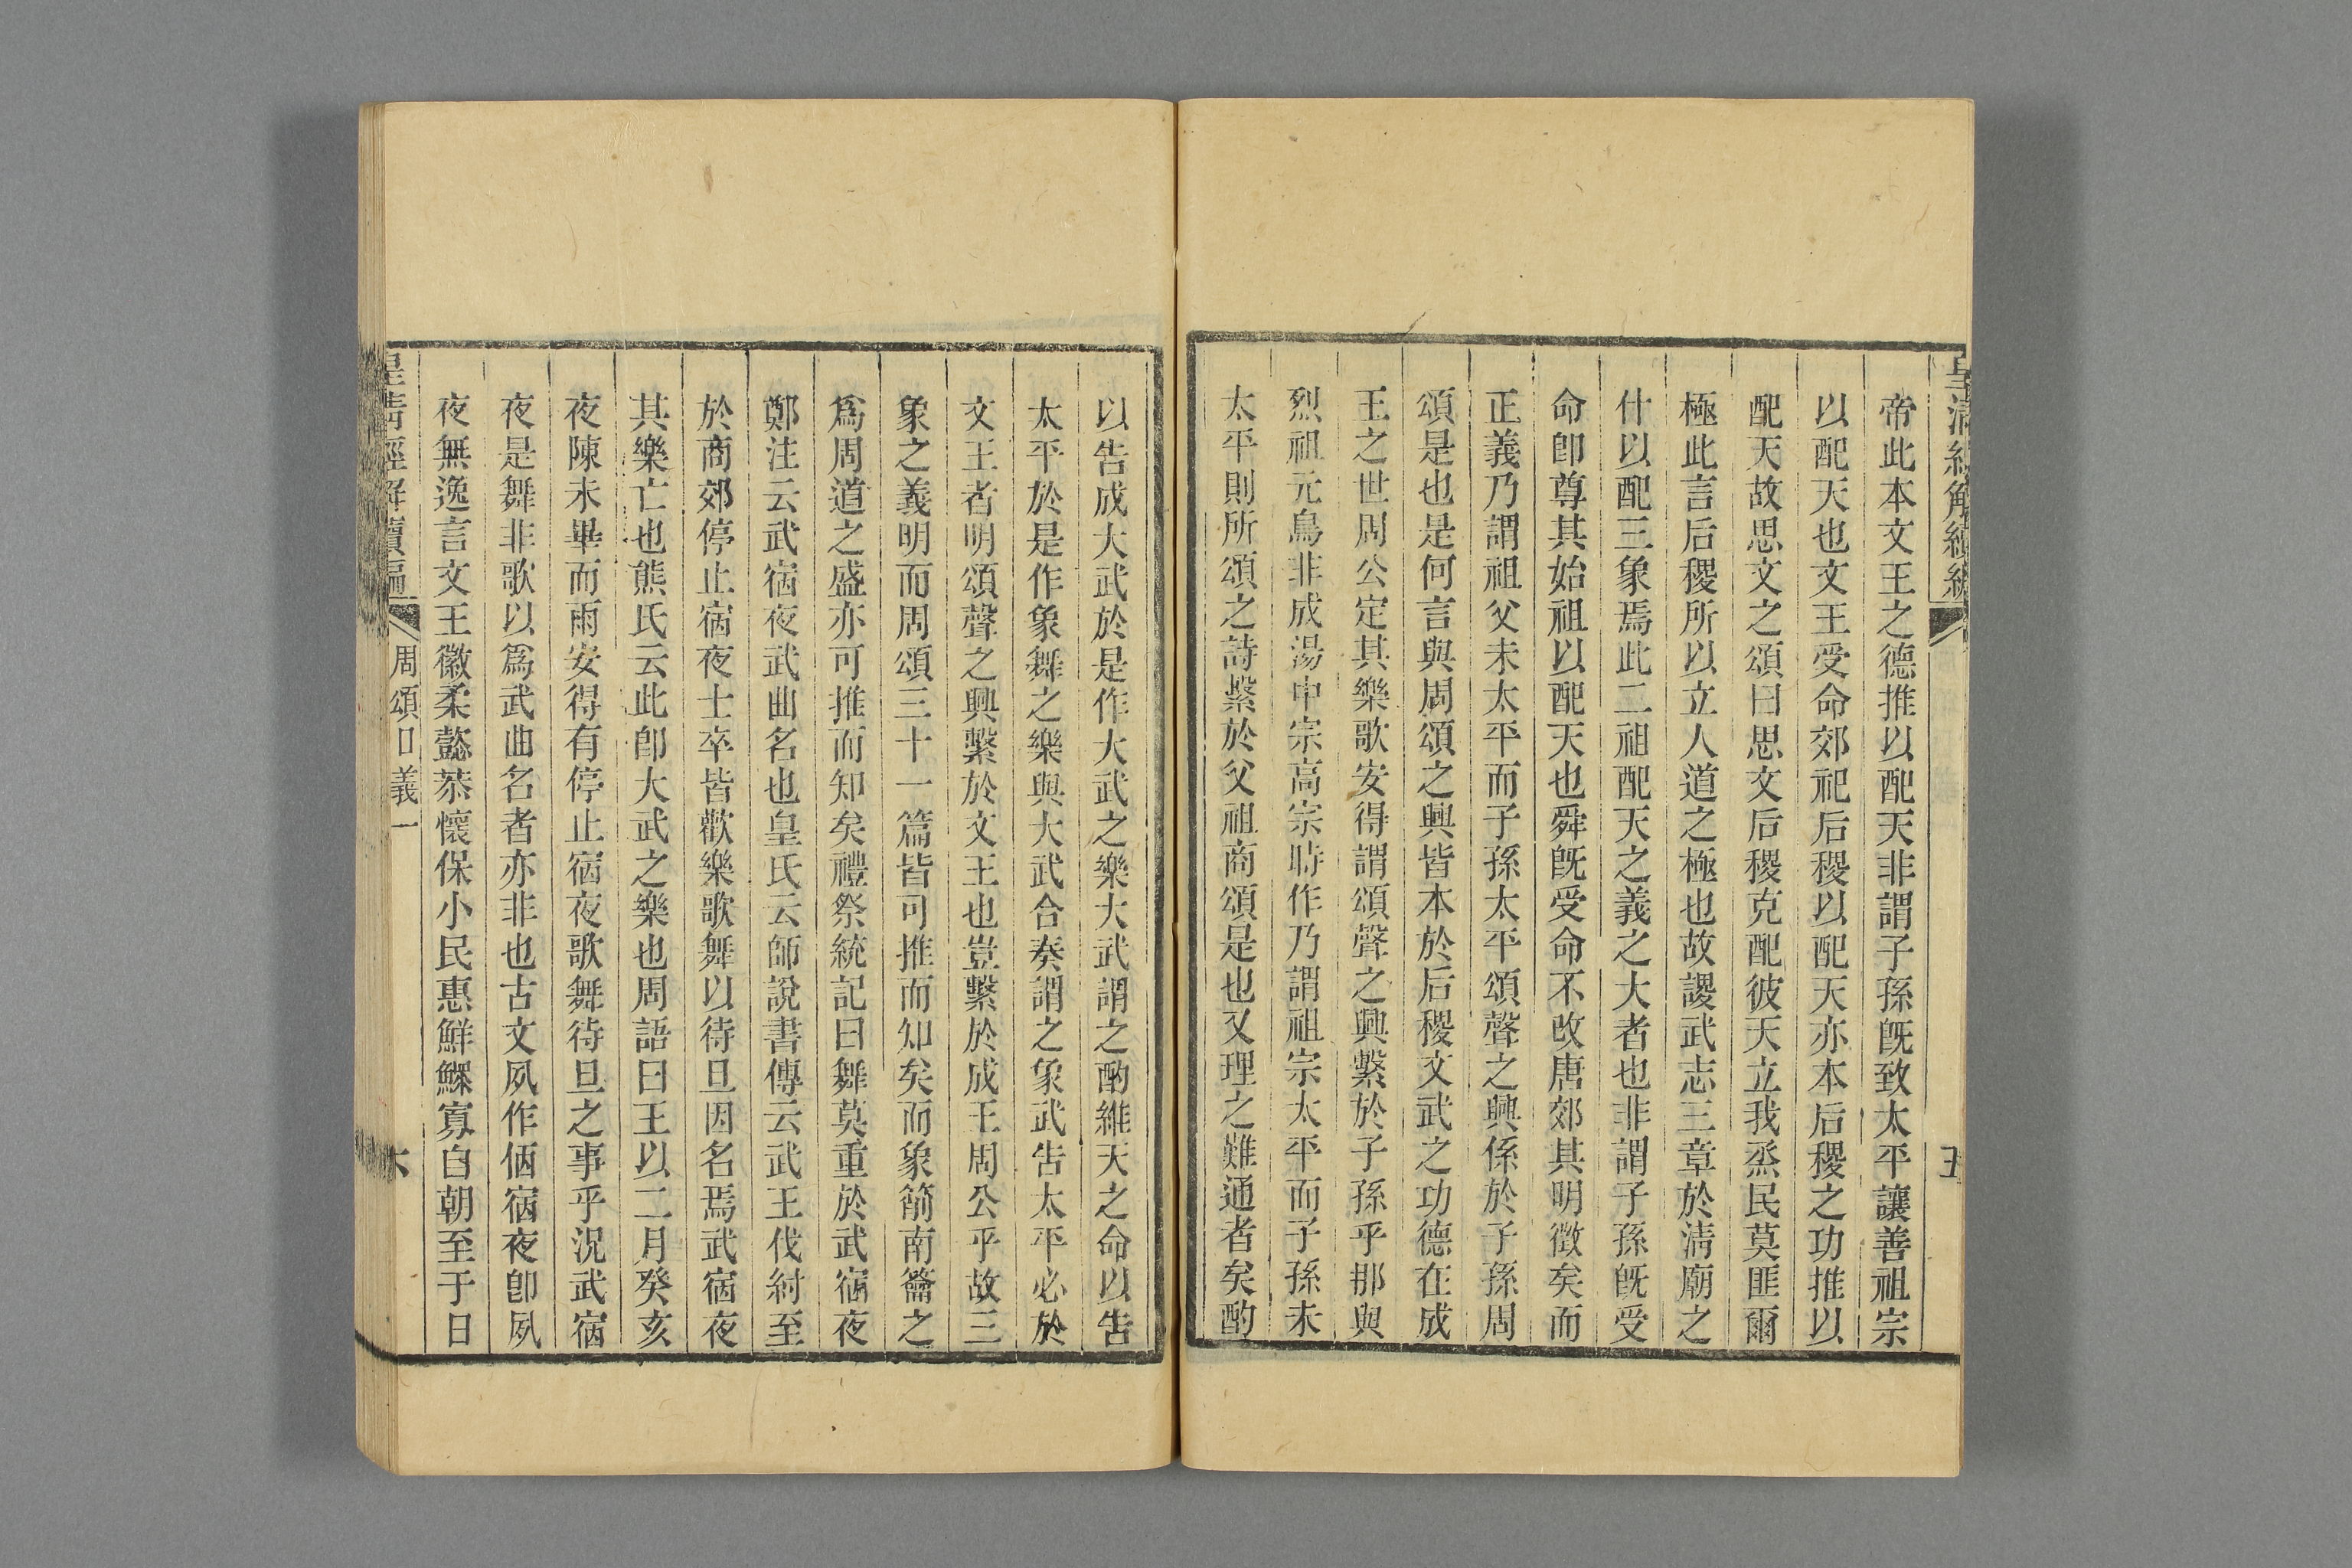 皇清經解續編
五
帝此本文王之德推以配天非謂子孫旣致太平讓善祖宗
以配天也文王受命郊祀后稷以配天亦本后稷之功推以
配天故思文之頌曰思文后稷克配彼天立我烝民莫匪爾
極此言后稷所以立人道之極也故謖武志三章於淸廟之
什以配三象焉此二祖配天之義之大者也非謂子孫旣受
命卽尊其始祖以配天也舜旣受命不改唐郊其明徵矣而
正義乃謂祖父未太平而子孫太平頌聲之興係於子孫周
頌是也是何言與周頌之興皆本於后稷文武之功德在成
王之世周公定其樂歌安得謂頌聲之興繫於子孫乎那與
烈祖元鳥非成湯中宗高宗時作乃謂祖宗太平而子孫未
太平則所頌之詩繫於父祖商頌是也又理之難通者矣酌
以告成大武於是作大武之樂大武謂之酌維天之命以告
太平於是作象舞之樂與大武合奏謂之象武告太平必於
文王者明頌聲之興繫於文王也豈繫於成王周公乎故三
象之義明而周頌三十一篇皆可推而知矣而象箾南籥之
爲周道之盛亦可推而知矣禮祭統記曰舞莫重於武宿夜
鄭注云武宿夜武曲名也皇氏云師說書傳云武王伐紂至
於商郊停止宿夜士卒皆歡樂歌舞以待旦因名焉武宿夜
其樂亡也熊氏云此卽大武之樂也周語曰王以二月癸亥
夜陳未畢而雨安得有停止宿夜歌舞待旦之事乎況武宿
夜是舞非歌以爲武曲名者亦非也古文夙作㑉宿夜卽夙
夜無逸言文王徽柔懿恭懷保小民惠鮮鰥寡自朝至于日
皇清經解續編
周頌口義一
六